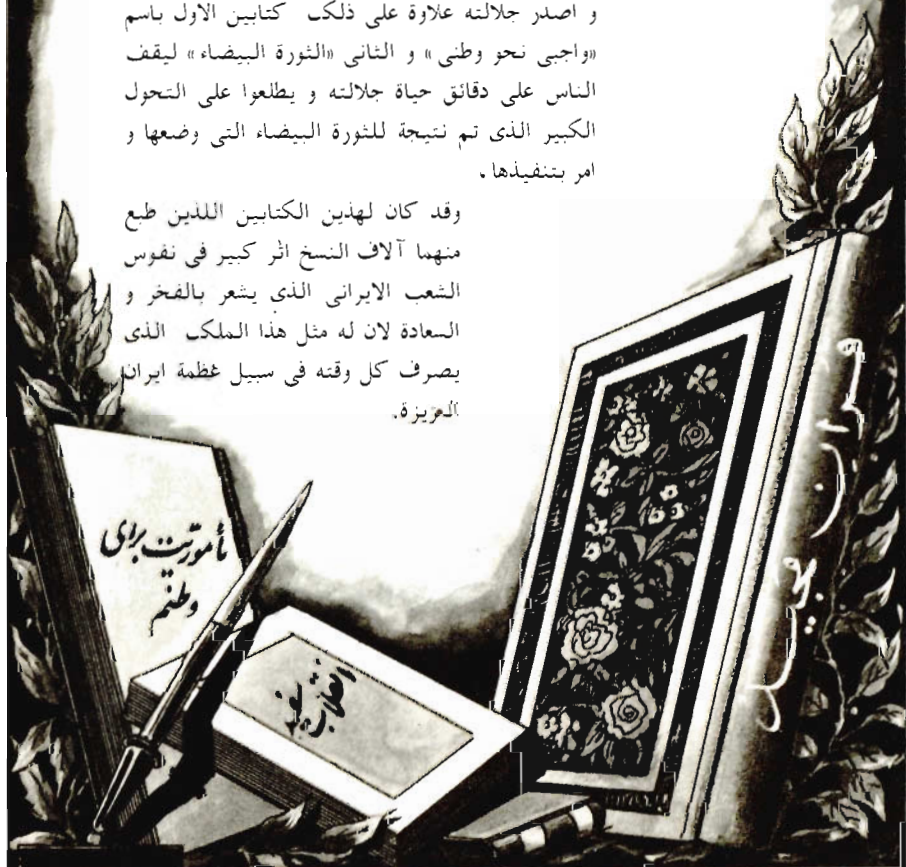 و اصدر جلالته علاوة على ذلک کتابين الاول باسم
«واجبى نحو وطنى» و الثانى «الثورة البيضاء» ليقف
الناس على دقائق حياة جلالته و يطلعوا على التحول
الکبير الذى تم نتيجة للثورة البيضاء التى وضعها و
امر بتنفيذها.
وقد کان لهذين الکتابين اللذين طبع
منهما آلاف النسخ اثر کبير فى نفوس
الشعب الايرانى الذى يشعر بالفخر و
السعادة لان له مثل هذا الملک الذى
يصرف کل وقته فى سبيل عظمة ايران
العزيزة.
مأموریت برای
وطنم
انقلاب سفید
قرآن مجید